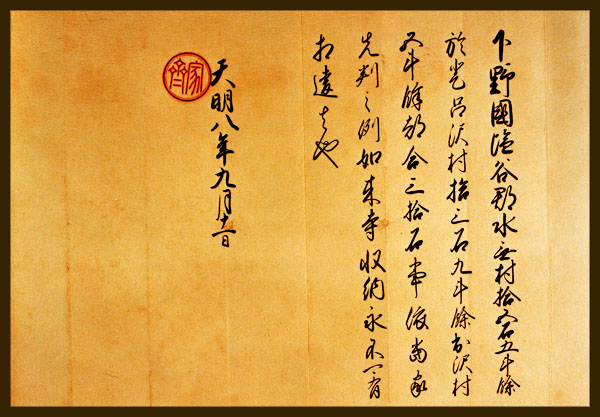 下野國塩谷郡水無村拾五石五斗餘
於呂沢村拾三石九斗餘沢村
五斗餘都合三拾石事依當家
先判之例如来寺収納永不可有
相違者也
天明八年九月十一日
家齊